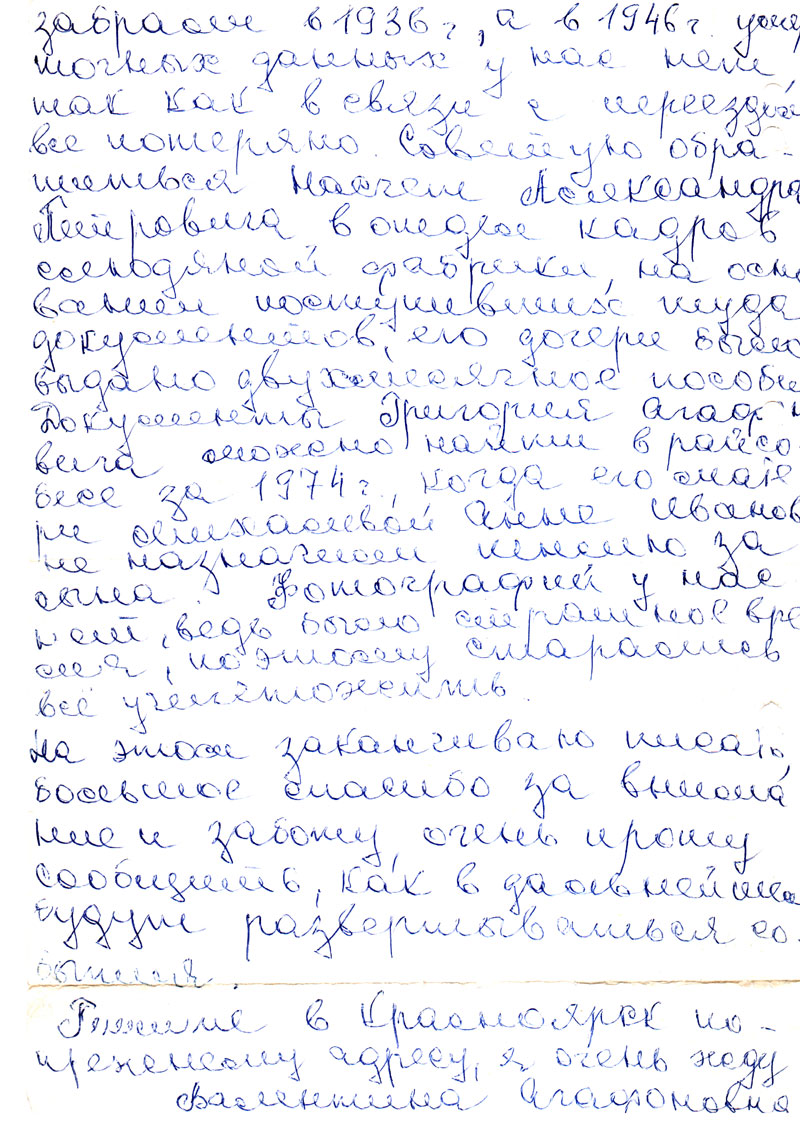 забрали в 1936 г., а в 1946 г. уме
точных данных у нас нет,
так как в связи с переезда
все потеряно. Советую обра-
титься насчет Александра
Петровича в отдел кадров
слюдяной фабрики, на осно
вании поступивших туда
документов, его дочери было
выдано двухмесячное пособи
Документы Григория Агаф
вича можно найти в райсо
бесе за 1974 г., когда его мате
ри Михалевой Анне Иванов
не назначили пенсию за
сына. Фотографий у нас
нет, ведь было страшное вре
мя, поэтому старались
всё уничтожить.
На этом заканчиваю писать,
большое спасибо за внима
ние и заботу, очень прошу
сообщить, как в дальнейше
будут развертываться со-
бытия.
Пишите в Красноярск по-
прежнему адресу, я очень жду
Валентина Агафоновна